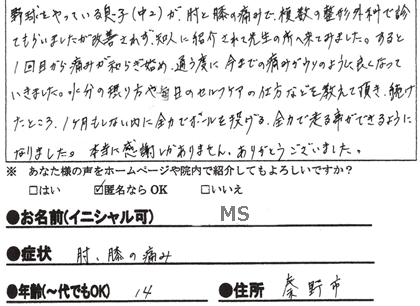 野球をやっている息子(中2)が、肘と膝の痛みで、複数の整形外科で診
てもらいましたが改善されず、知人に紹介されて先生の所へ来てみました。すると
1回目から痛みが和らぎ始め、通う度に今までの痛みがウソのように良くなって
いきました。水分の摂り方や毎日のセルフケアの仕方などを教えて頂き、続け
たところ、1ヶ月もしない内に全力でボールを投げる、全力で走る事ができるように
なりました。本当に感謝しかありません。ありがとうございました。
※ あなた様の声をホームページや院内で紹介してもよろしいですか?
□はい ☑匿名なら OK □いいえ
●お名前(イニシャル可) MS
●症状 肘、膝の痛み
●年齢(~代でもOK) 14 ●住所 秦野市